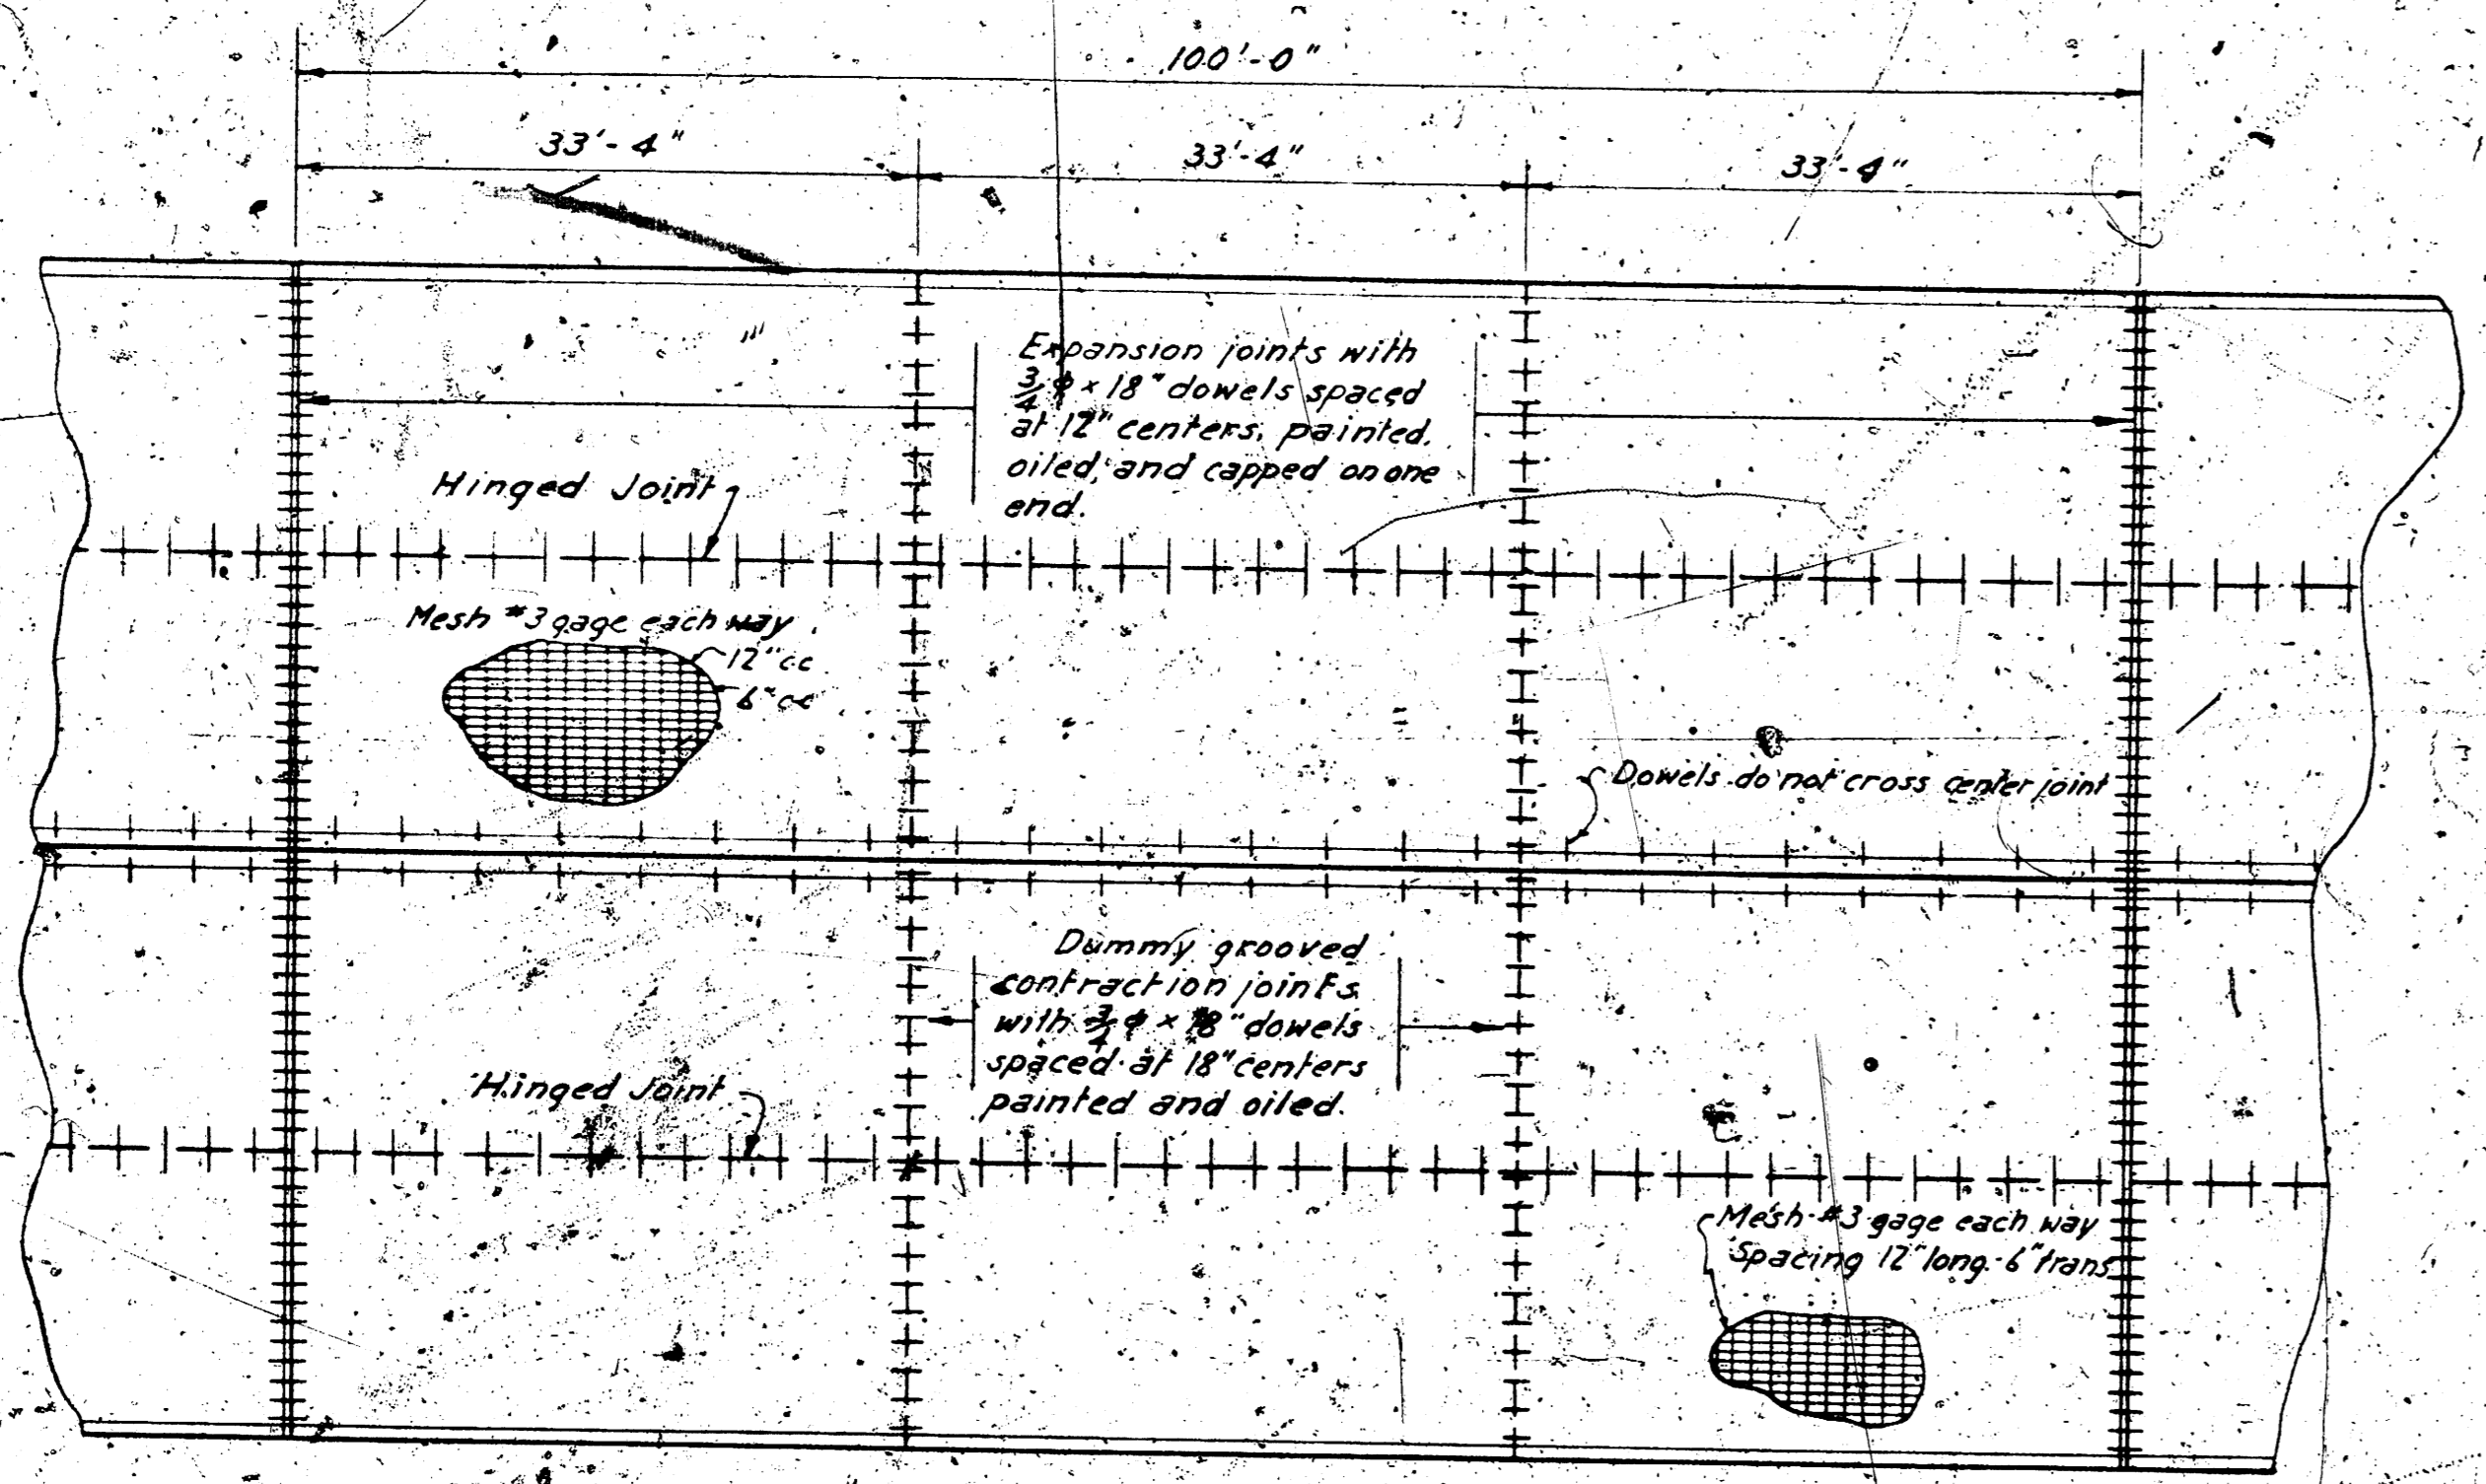 100'-0"
33'-4"
33'-4"
33'-4"
Expansion joints with
3/4 ϕ x 18" dowels spaced
at 12" centers, painted,
oiled, and capped on one
end.
Hinged Joint
Mesh #3 gage each way
12" c.c
6" c.c
Dowels do not cross center joint
Dummy grooved
contraction joints
with 3/4 ϕ x 18" dowels
spaced at 18" centers
painted and oiled.
Hinged Joint
Mesh #3 gage each way
Spacing 12" long. 6" trans